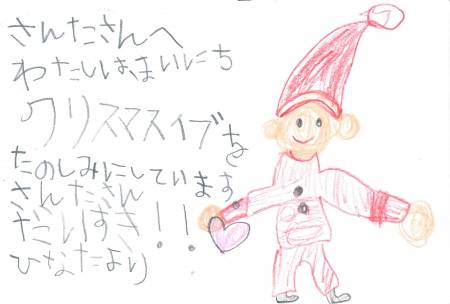 さんたさんへ
わたしはまいにち
クリスマスイブを
たのしみにしています
さんたさん
だいすき!!
ひなたより